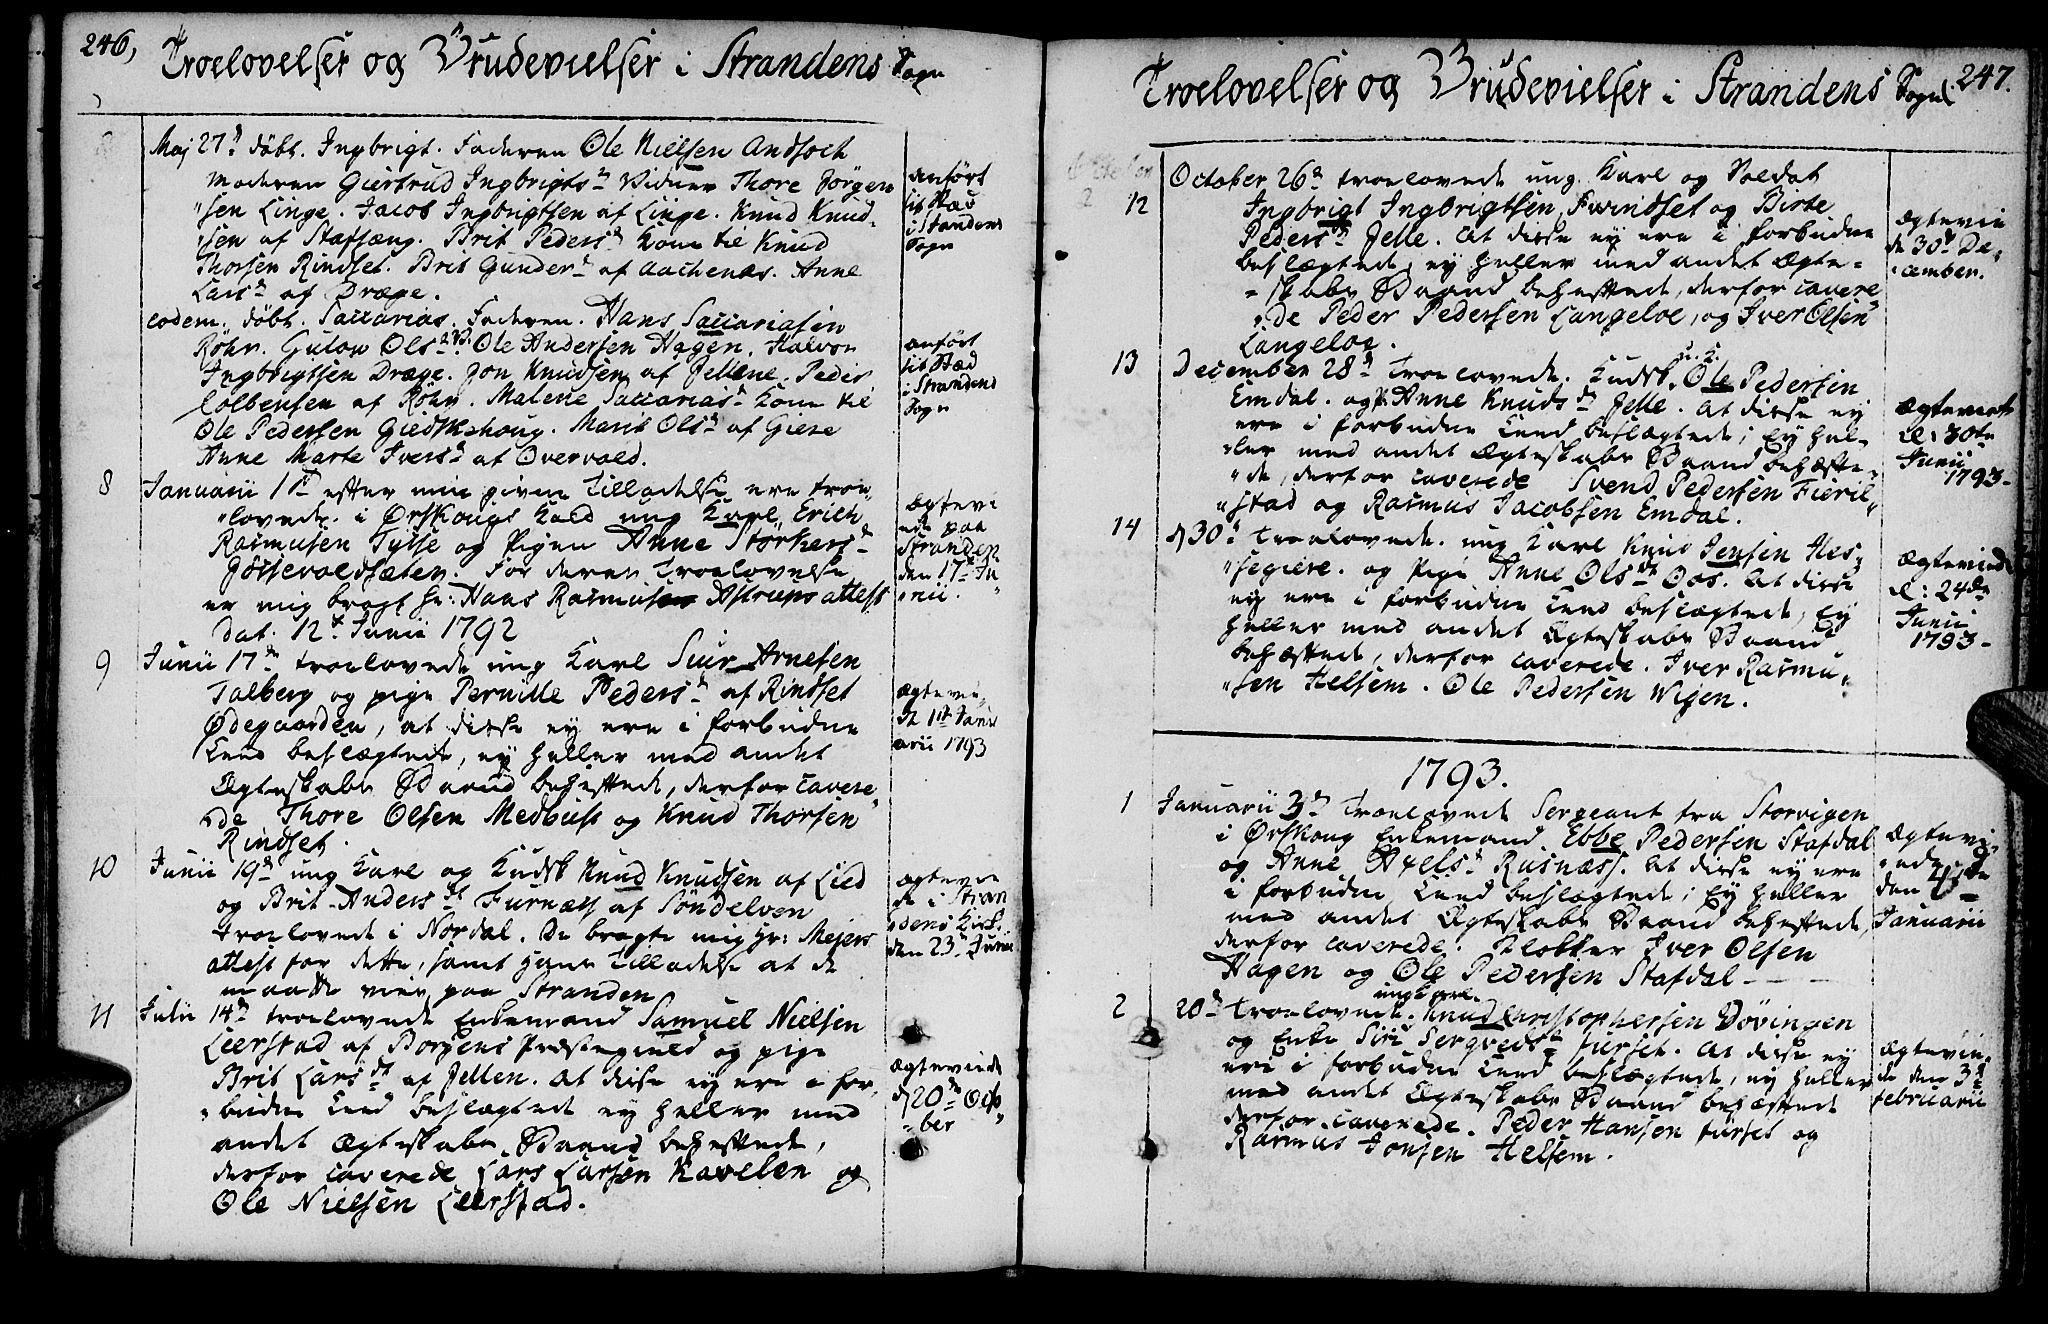 246,
Troelovelser og Brudevielser i Strandens Sogn
Maj 27de döbt. Ingbrigt. Faderen Ole Nielsen Andsoch
Moderen Giertrud Ingbrigtsdr Vidner Thore Jörgen
"sen Linge. Jacob Ingbrigtsen af Linge. Knud Knud-
"sen af Stafsæng. Brit Pedersdr Kone til Knud
Thorsen Rindset. Brit Gundersdr af Aachenæs. Anne
Larsdr af Dræge.
anført
sit Stæd
i Strandens
Sogn
eodem döbt. Saccarias. Faderen. Hans Saccariasen
Röhr. Gulow Olsdr Ole Andersen Hagen. Halvor
Ingbrigtsen Dræge. Jon Knudsen af Jellene. Peder
Colbensen af Röhr. Malene Saccariasdr Kone til
Ole Pedersen Giedskehoug. Marit Olsdr af Giere
Anne Marte Iversdr af Overvold.
anført
sit Stæd
i Strandens
Sogn
8 Januarii 1ste efter min given Tilladelse ere troe-
"lovede i Ørskougs Kald ung Karl Erich
Rasmusen Tysse og Pigen Anne Störkersdr
Jösevoldsæten. For deres Troelovelse
er mig bragt Hr: Hans Rasmusen Astrups attest
Dat. 12te Junii 1792
Ægtevi
ede paa
Stranden
den 17de Ju
"nii.
9 Junii 17de troelovede ung Karl Siur Arnesen
Talberg og pige Pernille Pedersdr af Rindset
Ødegaarden, at disse ey ere i forbudne
Leed beslægtede, ey heller med andet
Ægteskabs Baand behestede, derfor cavere-
"de Thore Olsen Medhus og Knud Thorsen
Rindset.
Ægtevi-
de 1ste Janu
arii 1793
10 Junii 19de ung Karl og Kudsk Knud Knudsen af Lied
og Brit Andersdt Furnæss af Söndelven
troelovede i Nordal. De bragte mig Hr: Mejers
attest for dette, samt hans Tilladelse at de
maatte vies paa Stranden
Ægtevie
de i Stran
"dens Kirk.
den 23de Junii
11 Julii 14de troelovede Enkemand Samuel Nielsen
Leerstad af Borgens Præstegield og pige
Brit Larsdt af Jellen. At disse ey ere i for,
"budne Leed beslægtede ey heller med
andet Ægteskabs Baand behestede,
derfor caverede Lars Larsen Kavelen og
Ole Nielsen Leerstad.
Ægteviede
d 20de Octo
"ber
Troelovelser og Brudevielser i Strandens Sogn 247.
12 October 26de troelovede ung Karl og Soldat
Ingbrigt Ingbrigtsen Svindset og Birte
Pedersdt Jelle. At disse ey ere i forbudne
beslægtede, ey heller med andet Ægte-
"skabs Baand behestede, derfor cavere
"de Peder Pedersen Langeloe, og Iver Olsen
Langeloe.
Ægtevie
de 30de De-
cember.
13 December 28de Troelovede. Kudsk. Ole Pedersen
Emdal. og P: Anne Knudsdt Jelle. At disse ey
ere i forbudne Leed beslægtede; Ey hel-
"ler med andet Ægteskabs Baand behæste-
"de, derfor caverede Svend Pedersen Fieril-
"stad og Rasmus Jacobsen Emdal.
Ægteviet
d: 30te
Junii
1793-
14 d 30de Troelovede. ung Karl Knud Jensen Hes-
"segiere. og Pige Anne Olsdt Oos. At disse
ey ere i forbudne Leed beslægtede, Ey
heller med andet Ægteskabs Baand
behæstede, derfor caverede. Iver Rasmu-
"sen Helsem. Ole Pedersen Wigen.
Ægteviede
d: 24de
Junii
1793-
1793.
1 Januarii 3de Troelovede Sergeant fra Storvigen
i Ørskoug Enkemand. Ebbe Pedersen Stafdal
og Anne Axelsdt Rusnæss. At disse ey ere
i forbudne Leed beslægtede; Ey heller
med andet Ægteskabs Baand behestede,
derfor caverede. Klokker Iver Olsen
Hagen og Ole Pedersen Stafdal
Ægtevi-
"ede
den 4de
Januarii
2 20de Troelovede. ung Karl. Knud Christophersen Dövingen
og Enke Siri Sergvedsdr furset. At disse ey
ere i forbudne Leed beslægtede, ey heller
med andet Ægteskabs Baand behæstede
derfor caverede. Peder Hansen furset og
Rasmus Jonsen Helsem.
Ægtevi-
de den 3de
februarii